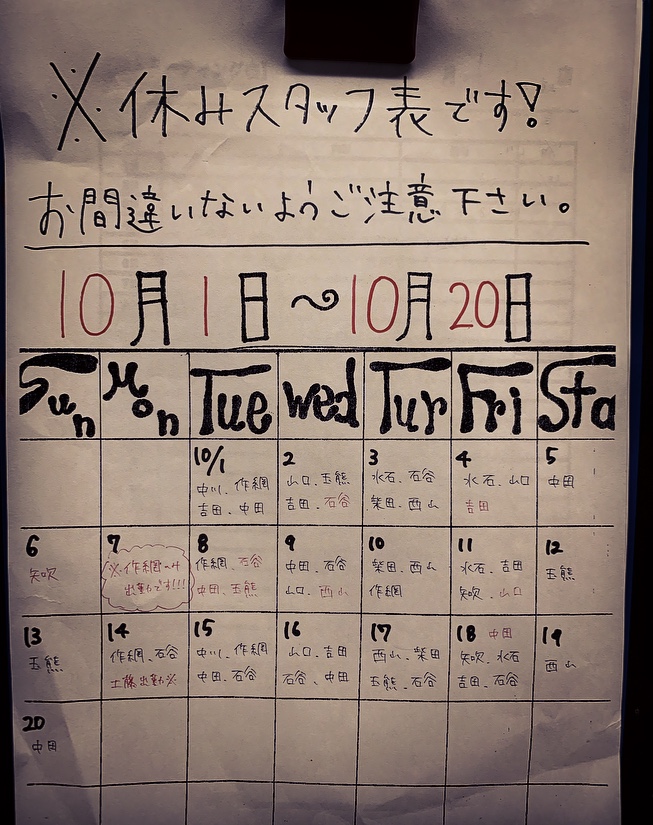 ※休みスタッフ表です!
お間違いないようご注意下さい。
10月1日〜10月20日
Sun Mon Tue Wed Tur Fri Sta
10/1
中川、作網
吉田、中田
2
山口、玉熊
吉田、石谷
3
水石、石谷
柴田、西山
4
水石、山口
吉田
5
中田
6
矢吹
7
※作網のみ
出勤です!!!
8
作網、石谷
中田、玉熊
9
中田、石谷
山口、西山
10
柴田、西山
作網
11
水石、吉田
矢吹、山口
12
玉熊
13
玉熊
14
作網、石谷
工藤出勤※
15
中川、作網
中田、石谷
16
山口、吉田
石谷、中田
17
西山、柴田
玉熊、石谷
18 中田
矢吹、水石
吉田、石谷
19
西山
20
中田